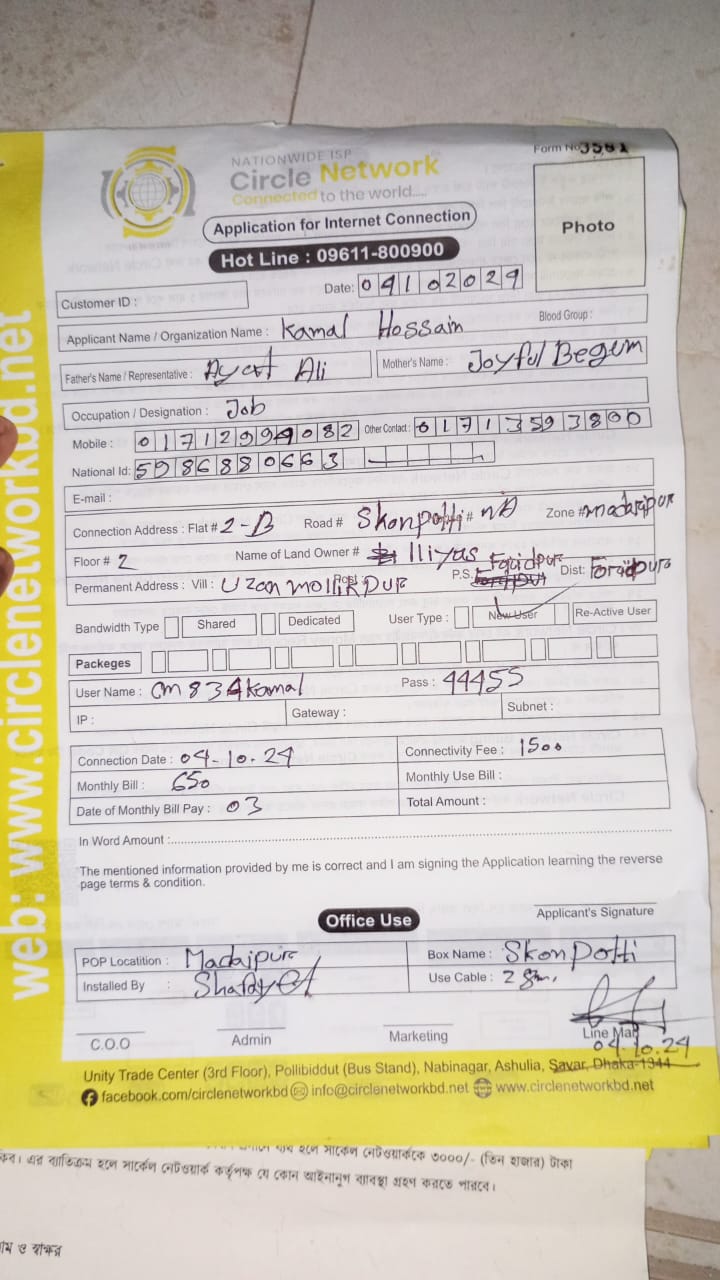 web: www.circlenetworkbd.net
Form No 3561
NATIONWIDE ISP
Circle Network
Connected to the world.....
Application for Internet Connection
Photo
Hot Line : 09611-800900
Date: 04102024
Customer ID :
Applicant Name / Organization Name : Kamal Hossain Blood Group :
Father's Name / Representative : Ayat Ali Mother's Name : Joyful Begum
Occupation / Designation : Job
Mobile : 01712994082 Other Contact : 01713593800
National Id: 5986880663
E-mail :
Connection Address : Flat # 2-B Road # Skonpotti # Zone # madaripur
Floor # 2 Name of Land Owner # Iliyas
Permanent Address : Vill : Uzan mollikpura Post P.S. Faridpur Dist: Foridpura
Bandwidth Type Shared Dedicated User Type : New User Re-Active User
Packeges
User Name : cm834kamal Pass : 44455
IP : Gateway : Subnet :
Connection Date : 04-10.24 Connectivity Fee : 1500
Monthly Bill : 650 Monthly Use Bill :
Date of Monthly Bill Pay : 03 Total Amount :
In Word Amount :
The mentioned information provided by me is correct and I am signing the Application learning the reverse
page terms & condition.
Applicant's Signature
Office Use
POP Locatition : Madaipura Box Name : Skonpotti
Installed By : Use Cable : 2
C.O.O Admin Marketing Line Man
04.10.24
Unity Trade Center (3rd Floor), Pollibiddut (Bus Stand), Nabinagar, Ashulia, Savar, Dhaka-1344
facebook.com/circlenetworkbd info@circlenetworkbd.net www.circlenetworkbd.net
হলে সার্কেল নেটওয়ার্ককে ৩০০০/- (তিন হাজার) টাকা
এর ব্যতিক্রম হলে সার্কেল নেটওয়ার্ক কর্তৃপক্ষ যে কোন আইনানুগ ব্যবস্থা গ্রহণ করতে পারবে।
ও স্বাক্ষর